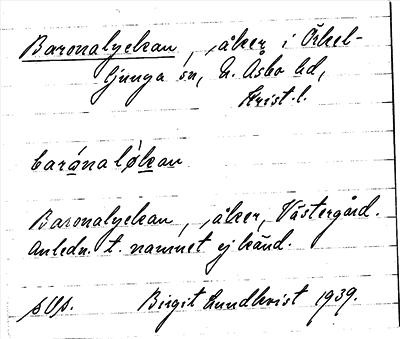 Baronalyckan, åker i Örkel-
ljunga sn, N. Åsbo hd,
Krist. l.
barána lǿkan
Baronalyckan, åker, Västergård.
Anledn. t. namnet ej känd.
Birgit Lundkvist 1939.